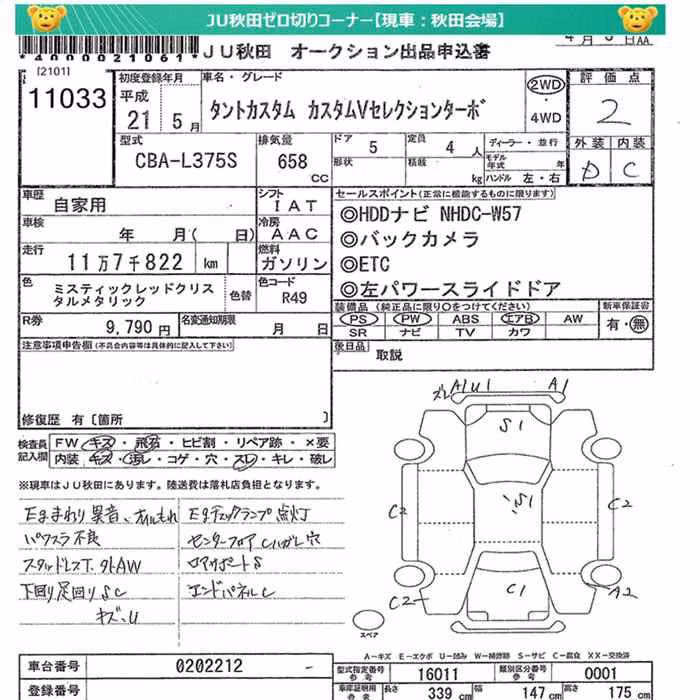 JU秋田ゼロ切りコーナー【現車:秋田会場】
*4000021061*
JU秋田 オークション出品申込書
[2101]
11033
初度登録年月
平成
21 5 月
車名・グレード
タントカスタム カスタムVセレクションターボ
2WD
・
4WD
評価点
2
外装 内装
D C
型式
CBA-L375S
排気量
658
CC
ドア 5
定員 4 人
形状
積載 kg
ディーラー・並行
モデル年式 年
ハンドル 左・右
車歴 自家用
シフト IAT
車検 年 月( 日)
冷房 AAC
走行 11万7千822 km
燃料 ガソリン
色 ミスティックレッドクリスタルメタリック
色替
色コード R49
R券 9,790 円
名変通知期限 月 日
セールスポイント(正常に機能するものに限ります)
◎HDDナビ NHDC-W57
◎バックカメラ
◎ETC
◎左パワースライドドア
装備品(純正品に限り○をつけてください)
新車保証書
PS PW ABS エアB AW
SR ナビ TV カワ
有・無
後日品 取説
注意事項申告欄(不具合内容等は具体的に記入して下さい)
修復歴 有〔箇所 〕
検査員記入欄
FW キズ・飛石・ヒビ割・リペア跡・×要
内装 キズ・汚レ・コゲ・穴・スレ・キレ・破レ
※現車はJU秋田にあります。陸送費は落札店負担となります。
Egまわり異音、オイルもれ
パワスラ不良
スタッドレスT.外AW
下回り足回りSC
キズ、U
Egチェックランプ点灯
センターフロアCハガレ穴
ロアサポートS
エンドパネルC
A1U1
A1
S1
S1
C2
C2
C1
C2
A2
スペア
A-キズ E-エクボ U-凹み W-補修跡 S-サビ C-腐食 XX-交換済
車台番号 0202212
登録番号
型式指定番号 参考 16011
類別区分番号 参考 0001
車庫証明用 参考
長さ 339 cm
幅 147 cm
高さ 175 cm